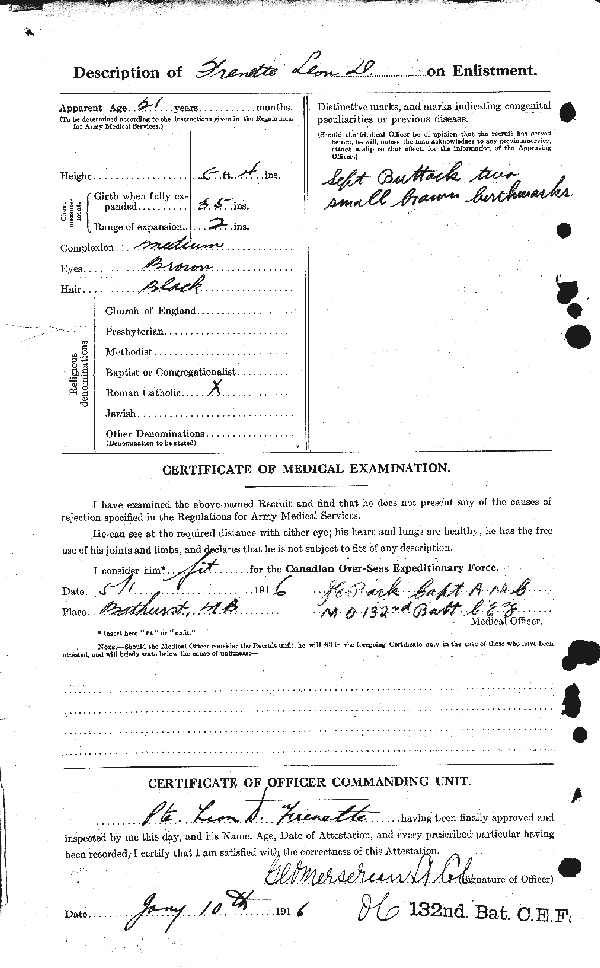 Description of Frenette Leon D. on Enlistment.
Apparent Age 21 years months.
(To be determined according to the instructions given in the Regulations for Army Medical Services.)
Height 5 ft. 4 ins.
Chest measurement.
Girth when fully expanded 35 ins.
Range of expansion 2 ins.
Complexion medium
Eyes Brown
Hair Black
Religious denominations
Church of England
Presbyterian
Methodist
Baptist or Congregationalist
Roman Catholic X
Jewish
Other Denominations
(Denomination to be stated)
Distinctive marks, and marks indicating congenital
peculiarities or previous disease.
(Should the Medical Officer be of opinion that the recruit has served
before, he will, unless the man acknowledges to any previous service,
attach a slip to that effect, for the information of the Approving
Officer.)
Left Buttock two
small brown birthmarks
CERTIFICATE OF MEDICAL EXAMINATION.
I have examined the above-named Recruit and find that he does not present any of the causes of
rejection specified in the Regulations for Army Medical Services.
He can see at the required distance with either eye; his heart and lungs are healthy; he has the free
use of his joints and limbs, and declares that he is not subject to fits of any description.
I consider him* fit for the Canadian Over-Seas Expeditionary Force.
Date 5/1 1916 Capt A M C
Place Bathurst, N.B. M O 132nd Batt C.E.F.
Medical Officer.
* Insert here "fit" or "unfit."
NOTE.—Should the Medical Officer consider the Recruit unfit, he will fill in the foregoing Certificate only in the case of those who have been
attested, and will briefly state below the cause of unfitness:—
CERTIFICATE OF OFFICER COMMANDING UNIT.
Pte. Leon D. Frenette having been finally approved and
inspected by me this day, and his Name, Age, Date of Attestation, and every prescribed particular having
been recorded, I certify that I am satisfied with the correctness of this Attestation.
Mersereau Lt Col (Signature of Officer)
Date Jany 10th 1916 OC 132nd. Bat. C.E.F.